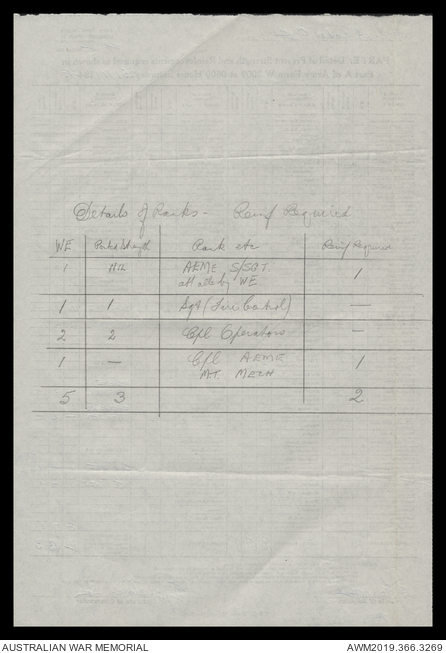 Details of Ranks - Reinf Required
WE Posted Strength Rank etc Reinf Required
1 NIL AEME S/SGT 1
att by WE
1 1 Sgt (Fire Control) —
2 2 Cpl Operators —
1 — Cpl AEME 1
MT. MECH
5 3 2
AUSTRALIAN WAR MEMORIAL AWM2019.366.3269